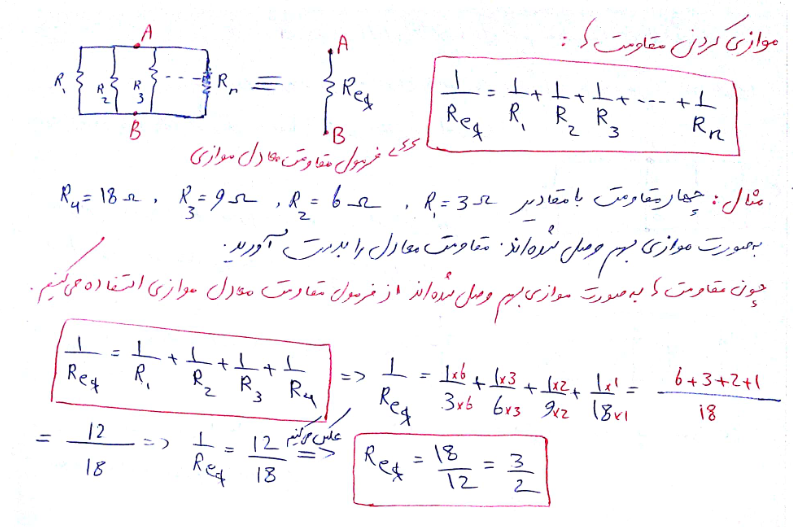 موازی کردن مقاومت ها :
A
R₁ R₂ R₃ ---- Rₙ ≡ Req
B
A
B
1/Req = 1/R₁ + 1/R₂ + 1/R₃ + ---- + 1/Rₙ
فرمول مقاومت معادل موازی
مثال : چهار مقاومت با مقادیر R₁ = 3 Ω , R₂ = 6 Ω , R₃ = 9 Ω , R₄ = 18 Ω
به صورت موازی بهم وصل شده‌اند. مقاومت معادل را بدست آورید.
چون مقاومت ها به صورت موازی بهم وصل شده‌اند از فرمول مقاومت معادل موازی استفاده می‌کنیم.
1/Req = 1/R₁ + 1/R₂ + 1/R₃ + 1/R₄ => 1/Req = 1×6/3×6 + 1×3/6×3 + 1×2/9×2 + 1×1/18×1 = 6+3+2+1/18
= 12/18 => 1/Req = 12/18 عکس می‌کنیم => Req = 18/12 = 3/2